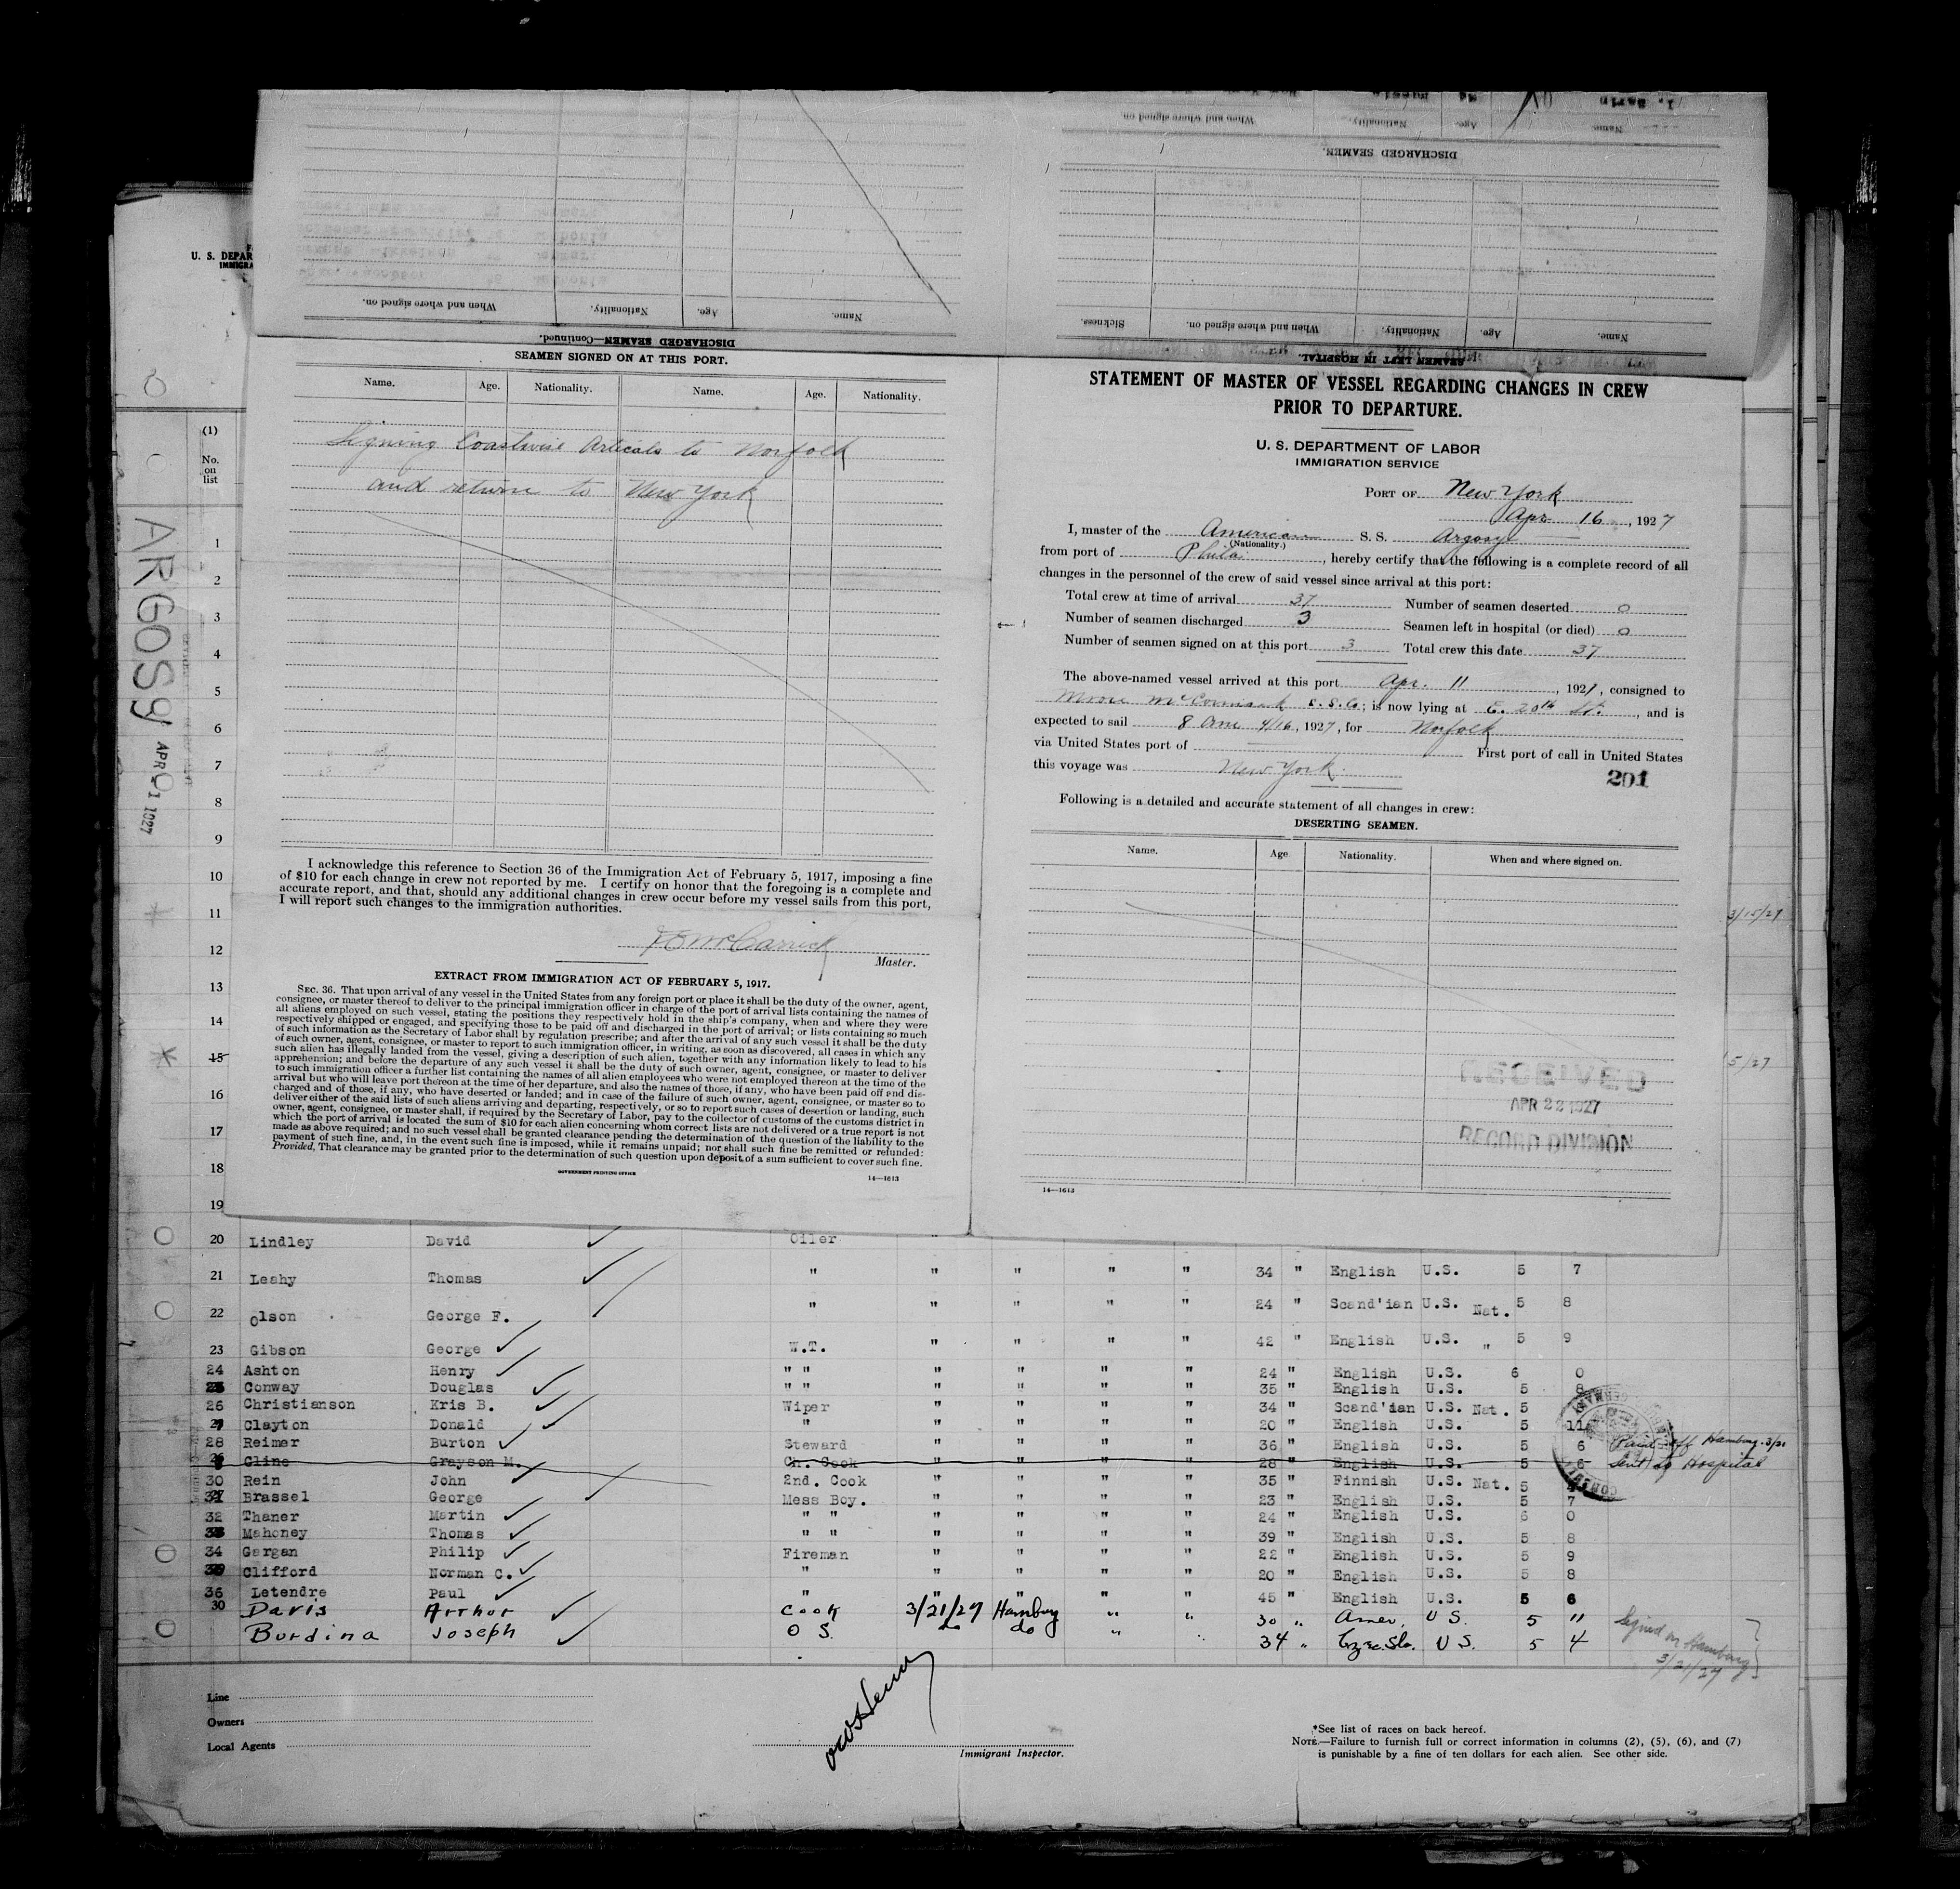 U. S. DEPAR
IMMIGRA
(1)
No.
on
list
ARGOSY
1
2
3
4
5
6
7
8
9
10
11
12
13
14
15
16
17
18
19
When and where signed on.
Nationality.
Age.
Name.
DISCHARGED SEAMEN—Continued.
When and where signed on.
Nationality.
Age.
Name.
DISCHARGED SEAMEN.
Sickness.
When and where signed on.
Nationality.
Age.
Name.
SEAMEN LEFT IN HOSPITAL.
SEAMEN SIGNED ON AT THIS PORT.
Name. Age. Nationality. Name. Age. Nationality.
Signing Coastwise Articals to Norfolk
and return to New York
I acknowledge this reference to Section 36 of the Immigration Act of February 5, 1917, imposing a fine
of $10 for each change in crew not reported by me. I certify on honor that the foregoing is a complete and
accurate report, and that, should any additional changes in crew occur before my vessel sails from this port,
I will report such changes to the immigration authorities.
Master.
EXTRACT FROM IMMIGRATION ACT OF FEBRUARY 5, 1917.
SEC. 36. That upon arrival of any vessel in the United States from any foreign port or place it shall be the duty of the owner, agent,
consignee, or master thereof to deliver to the principal immigration officer in charge of the port of arrival lists containing the names of
all aliens employed on such vessel, stating the positions they respectively hold in the ship's company, when and where they were
respectively shipped or engaged, and specifying those to be paid off and discharged in the port of arrival; or lists containing so much
of such information as the Secretary of Labor shall by regulation prescribe; and after the arrival of any such vessel it shall be the duty
of such owner, agent, consignee, or master to report to such immigration officer, in writing, as soon as discovered, all cases in which any
such alien has illegally landed from the vessel, giving a description of such alien, together with any information likely to lead to his
apprehension; and before the departure of any such vessel it shall be the duty of such owner, agent, consignee, or master to deliver
to such immigration officer a further list containing the names of all alien employees who were not employed thereon at the time of the
arrival but who will leave port thereon at the time of her departure, and also the names of those, if any, who have been paid off and dis-
charged and of those, if any, who have deserted or landed; and in case of the failure of such owner, agent, consignee, or master so to
deliver either of the said lists of such aliens arriving and departing, respectively, or so to report such cases of desertion or landing, such
owner, agent, consignee, or master shall, if required by the Secretary of Labor, pay to the collector of customs of the customs district in
which the port of arrival is located the sum of $10 for each alien concerning whom correct lists are not delivered or a true report is not
made as above required; and no such vessel shall be granted clearance pending the determination of the question of the liability to the
payment of such fine, and, in the event such fine is imposed, while it remains unpaid; nor shall such fine be remitted or refunded:
Provided, That clearance may be granted prior to the determination of such question upon deposit of a sum sufficient to cover such fine.
GOVERNMENT PRINTING OFFICE
14—1613
STATEMENT OF MASTER OF VESSEL REGARDING CHANGES IN CREW
PRIOR TO DEPARTURE.
U. S. DEPARTMENT OF LABOR
IMMIGRATION SERVICE
PORT OF New York
Apr 16, 1927
I, master of the American S. S. Argosy
(Nationality.)
from port of Phila., hereby certify that the following is a complete record of all
changes in the personnel of the crew of said vessel since arrival at this port:
Total crew at time of arrival 37 Number of seamen deserted 0
Number of seamen discharged 3 Seamen left in hospital (or died) 0
Number of seamen signed on at this port 3 Total crew this date 37
The above-named vessel arrived at this port Apr. 11, 1927, consigned to
Moore McCormack S.S.Co; is now lying at E. 20th St., and is
expected to sail 8 am 4/16, 1927, for Norfolk
via United States port of First port of call in United States
this voyage was New York.
201
Following is a detailed and accurate statement of all changes in crew:
DESERTING SEAMEN.
Name. Age Nationality. When and where signed on.
RECEIVED
APR 22 1927
RECORD DIVISION
14—1613
3/15/27
5/27
20 Lindley David Oiler
21 Leahy Thomas " " " " " 34 " English U.S. 5 7
22 Olson George F. " " " " " 24 " Scand'ian U.S. Nat. 5 8
23 Gibson George W.T. " " " " 42 " English U.S. " 5 9
24 Ashton Henry " " " " " " 24 " English U.S. 6 0
25 Conway Douglas " " " " " " 35 " English U.S. 5 8
26 Christianson Kris B. Wiper " " " " 34 " Scand'ian U.S. Nat. 5
27 Clayton Donald " " " " " 20 " English U.S. 5 11
28 Reimer Burton Steward " " " " 36 " English U.S. 5 6 Paid off Hamburg 3/21
Cline Grayson M. Ch. Cook " " " " 28 " English U.S. 5 6 Sent to Hospital
30 Rein John 2nd. Cook " " " " 35 " Finnish U.S. Nat. 5
Brassel George Mess Boy. " " " " 23 " English U.S. 5 7
32 Thaner Martin " " " " " " 24 " English U.S. 6 0
Mahoney Thomas " " " " " " 39 " English U.S. 5 8
34 Gargan Philip Fireman " " " " 22 " English U.S. 5 9
Clifford Norman C. " " " " " 20 " English U.S. 5 8
36 Letendre Paul " " " " " 45 " English U.S. 5 6
30 Davis Arthor Cook 3/21/27 Hamburg " " 30 " Amer. U S. 5 11
Burdina Joseph O S. do do " " 34 " Czec.Slo. U S. 5 4
Signed on Hamburg
3/21/27
Line
Owners
Local Agents
Immigrant Inspector.
*See list of races on back hereof.
NOTE.—Failure to furnish full or correct information in columns (2), (5), (6), and (7)
is punishable by a fine of ten dollars for each alien. See other side.